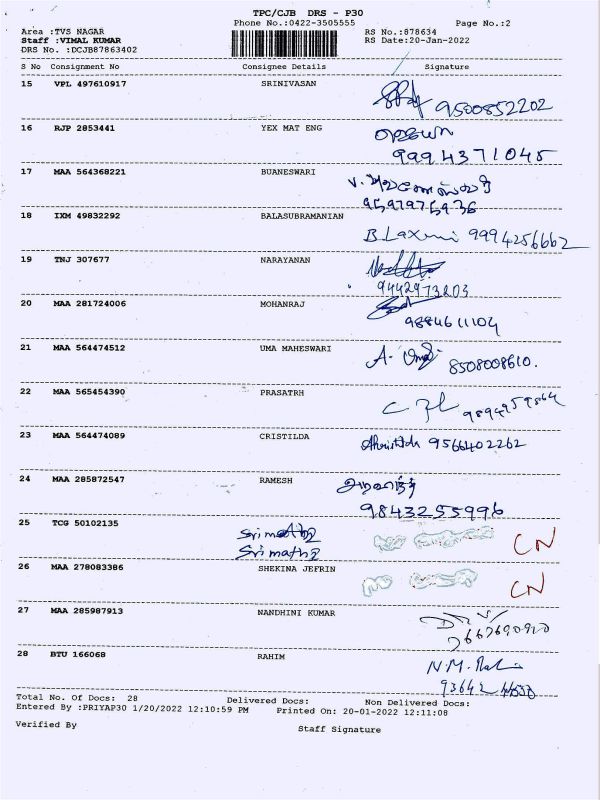 TPC/CJB DRS - P30
Phone No.:0422-3505555 Page No.:2
Area :TVS NAGAR RS No.:878634
Staff :VIMAL KUMAR RS Date:20-Jan-2022
DRS No. :DCJB87863402
S No Consignment No Consignee Details Signature
15 VPL 497610917 SRINIVASAN
9500852202
16 RJP 2853441 YEX MAT ENG
9994371045
17 MAA 564368221 BUANESWARI
9597975936
18 IXM 49832292 BALASUBRAMANIAN
B.Laxmi 9994256662
19 TNJ 307677 NARAYANAN
9442973203
20 MAA 281724006 MOHANRAJ
9884611104
21 MAA 564474512 UMA MAHESWARI
A. உமா 8508008610.
22 MAA 565454390 PRASATRH
9894959864
23 MAA 564474089 CRISTILDA
9566402262
24 MAA 285872547 RAMESH
9843255996
25 TCG 50102135
Srimathi
Srimathi CN
26 MAA 278083386 SHEKINA JEFRIN
CN
27 MAA 285987913 NANDHINI KUMAR
28 BTU 166068 RAHIM
N.M.
Total No. Of Docs: 28 Delivered Docs: Non Delivered Docs:
Entered By :PRIYAP30 1/20/2022 12:10:59 PM Printed On: 20-01-2022 12:11:08
Verified By Staff Signature